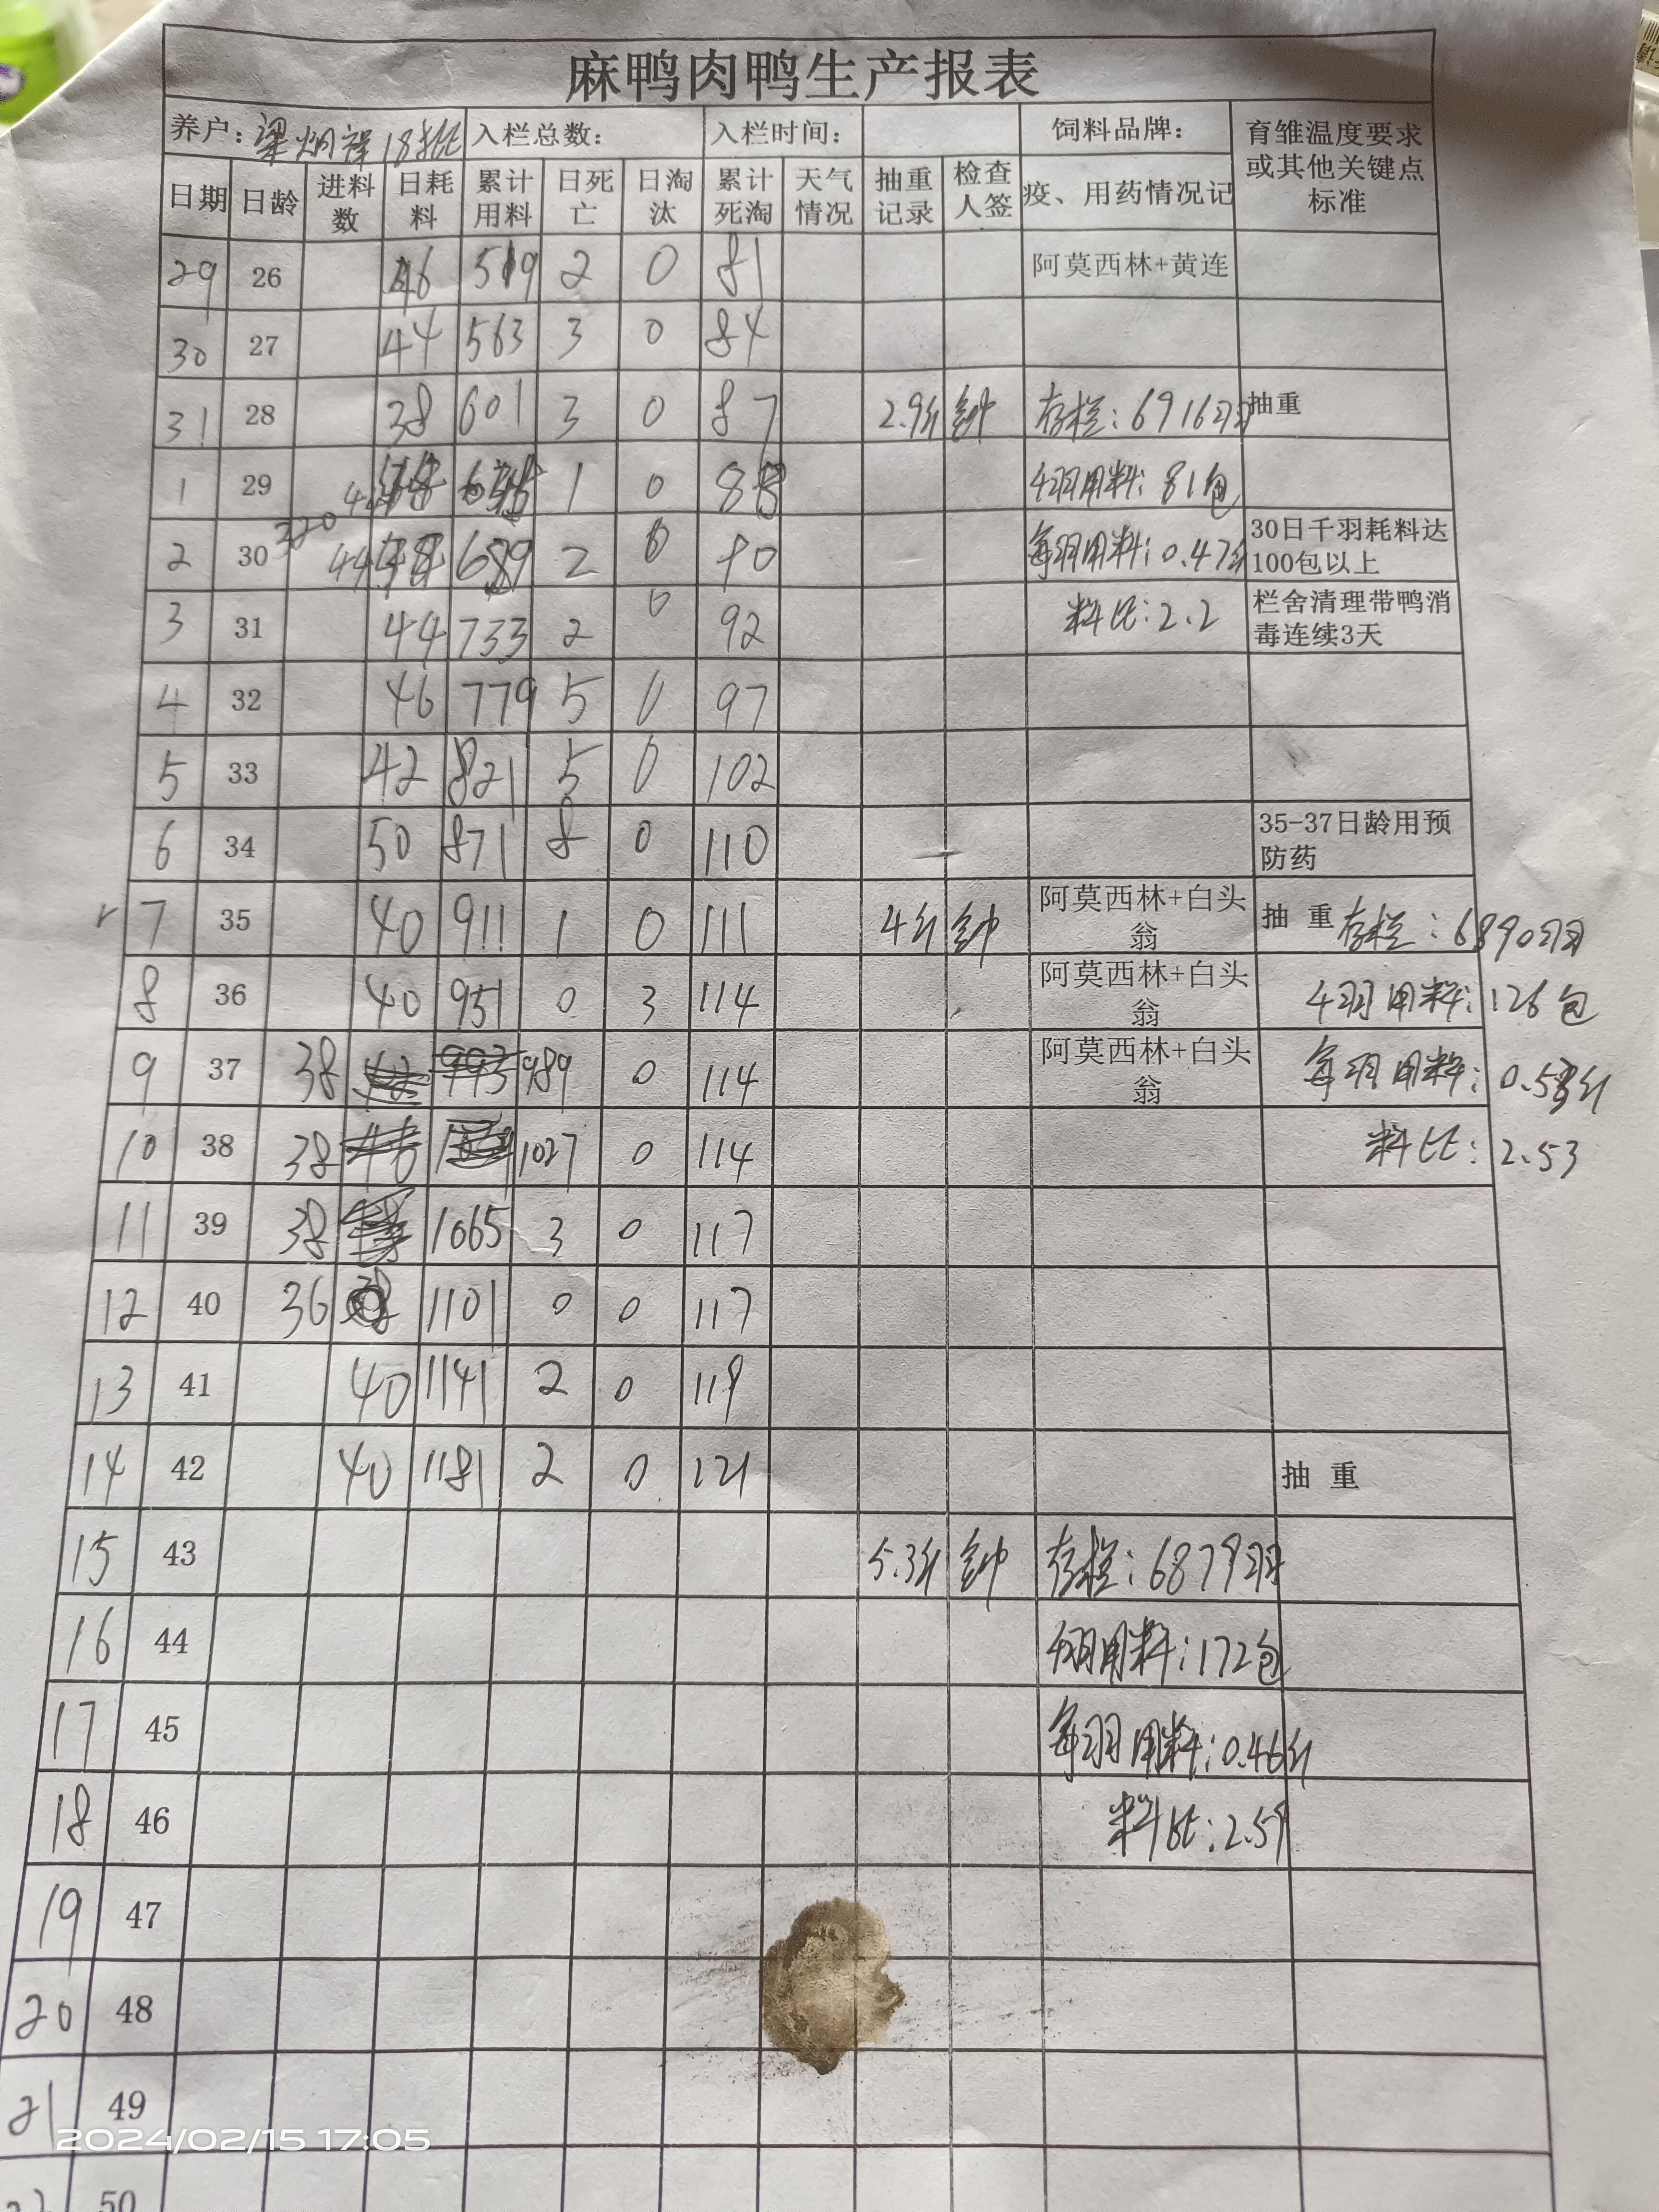 麻鸭肉鸭生产报表
养户: 梁炳祥18批 入栏总数: 入栏时间: 饲料品牌: 育雏温度要求或其他关键点标准
日期 日龄 进料数 日耗料 累计用料 日死亡 日淘汰 累计死淘 天气情况 抽重记录 检查人签 疫、用药情况记
29 26 46 519 2 0 81 阿莫西林+黄连
30 27 44 563 3 0 84
31 28 38 601 3 0 87 2.9斤 钟 存栏:6916羽 抽重
1 29 44 1 0 88 千羽用料:81包
2 30 320 44 689 2 0 90 每羽用料:0.47斤 30日千羽耗料达100包以上
3 31 44 733 2 0 92 料比:2.2 栏舍清理带鸭消毒连续3天
4 32 46 779 5 0 97
5 33 42 821 5 0 102
6 34 50 871 8 0 110 35-37日龄用预防药
7 35 40 911 1 0 111 4斤 钟 阿莫西林+白头翁 抽 重 存栏:6890羽
8 36 40 951 0 3 114 阿莫西林+白头翁 千羽用料:126包
9 37 38 989 0 114 阿莫西林+白头翁 每羽用料:0.58斤
10 38 38 1027 0 114 料比:2.53
11 39 38 1065 3 0 117
12 40 36 1101 0 0 117
13 41 40 1141 2 0 119
14 42 40 1181 2 0 121 抽 重
15 43 5.3斤 钟 存栏:6879羽
16 44 千羽用料:172包
17 45 每羽用料:0.46斤
18 46 料比:2.59
19 47
20 48
21 49
2024/02/15 17:05
50